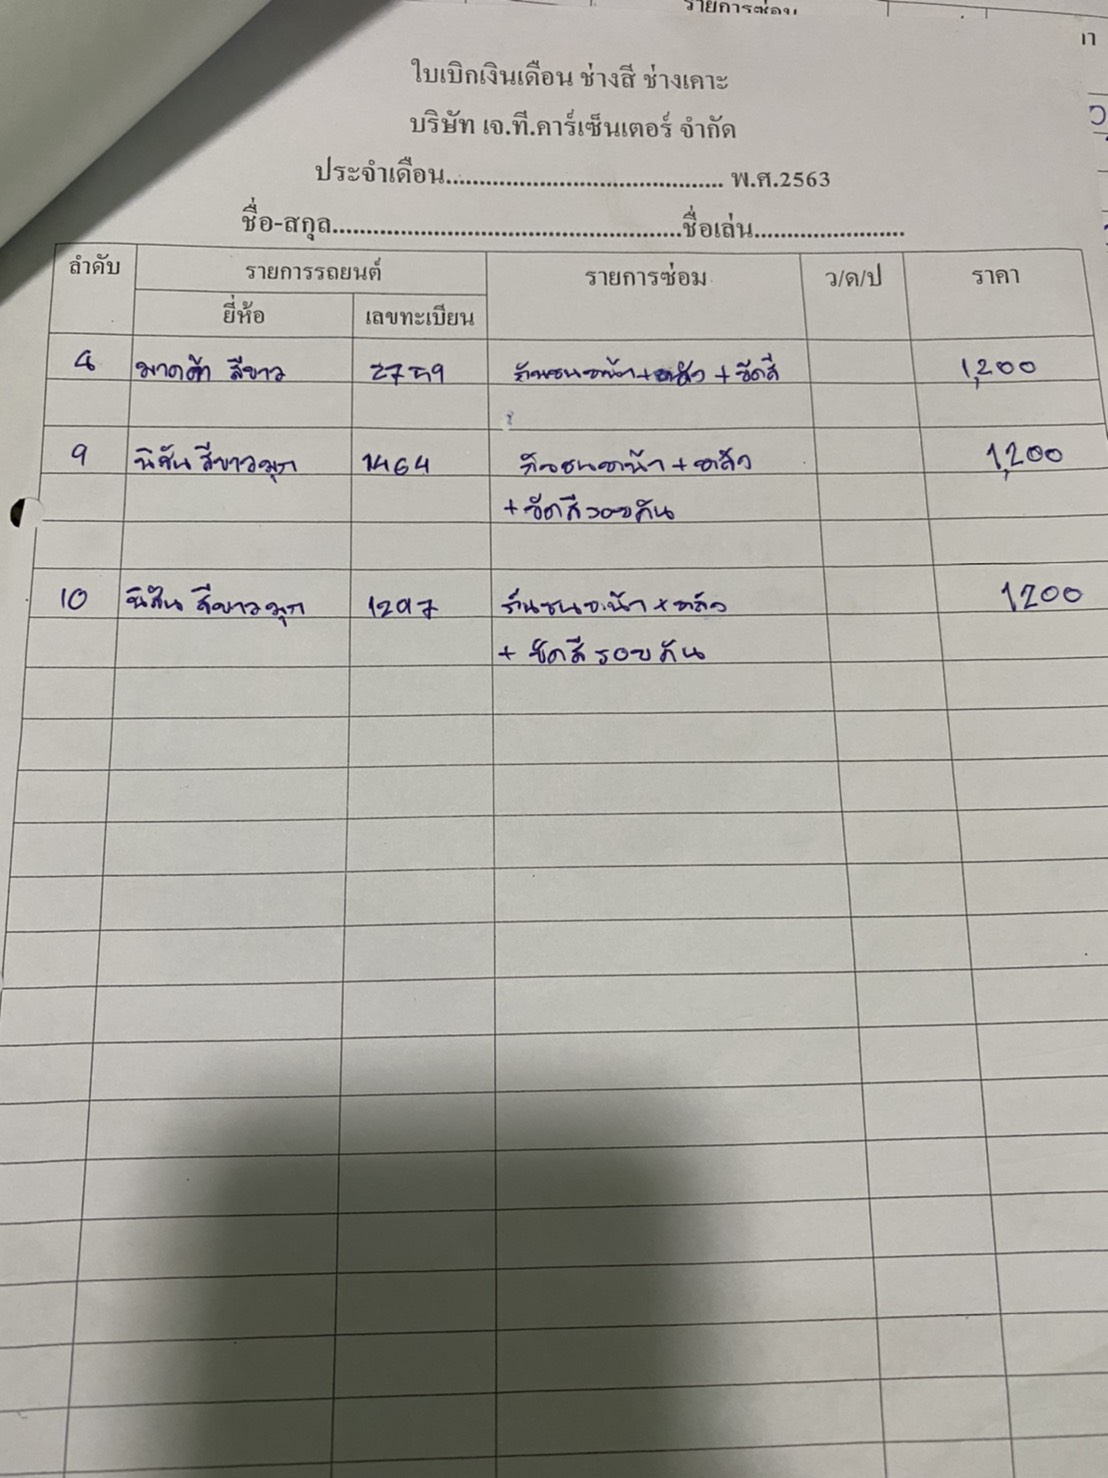 รายการซ่อม
ใบเบิกเงินเดือน ช่างสี ช่างเคาะ
บริษัท เจ.ที.คาร์เซ็นเตอร์ จำกัด
ประจำเดือน.......................................... พ.ศ.2563
ชื่อ-สกุล....................................................ชื่อเล่น.......................
ลำดับ รายการรถยนต์ รายการซ่อม ว/ด/ป ราคา
ยี่ห้อ เลขทะเบียน
มาสด้า สีขาว กันชนหน้า+หลัง + ขัดสี 1,200
9 นิสัน สีขาวมุก 1464 กันชนหน้า + หลัง 1,200
+ ขัดสีรอบคัน
10 นิสัน สีขาวมุก 1297 กันชนหน้า + หลัง 1200
+ ขัดสีรอบคัน